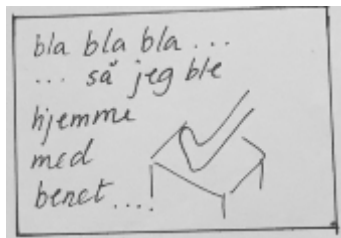 bla bla bla ...
... så jeg ble
hjemme
med
benet....